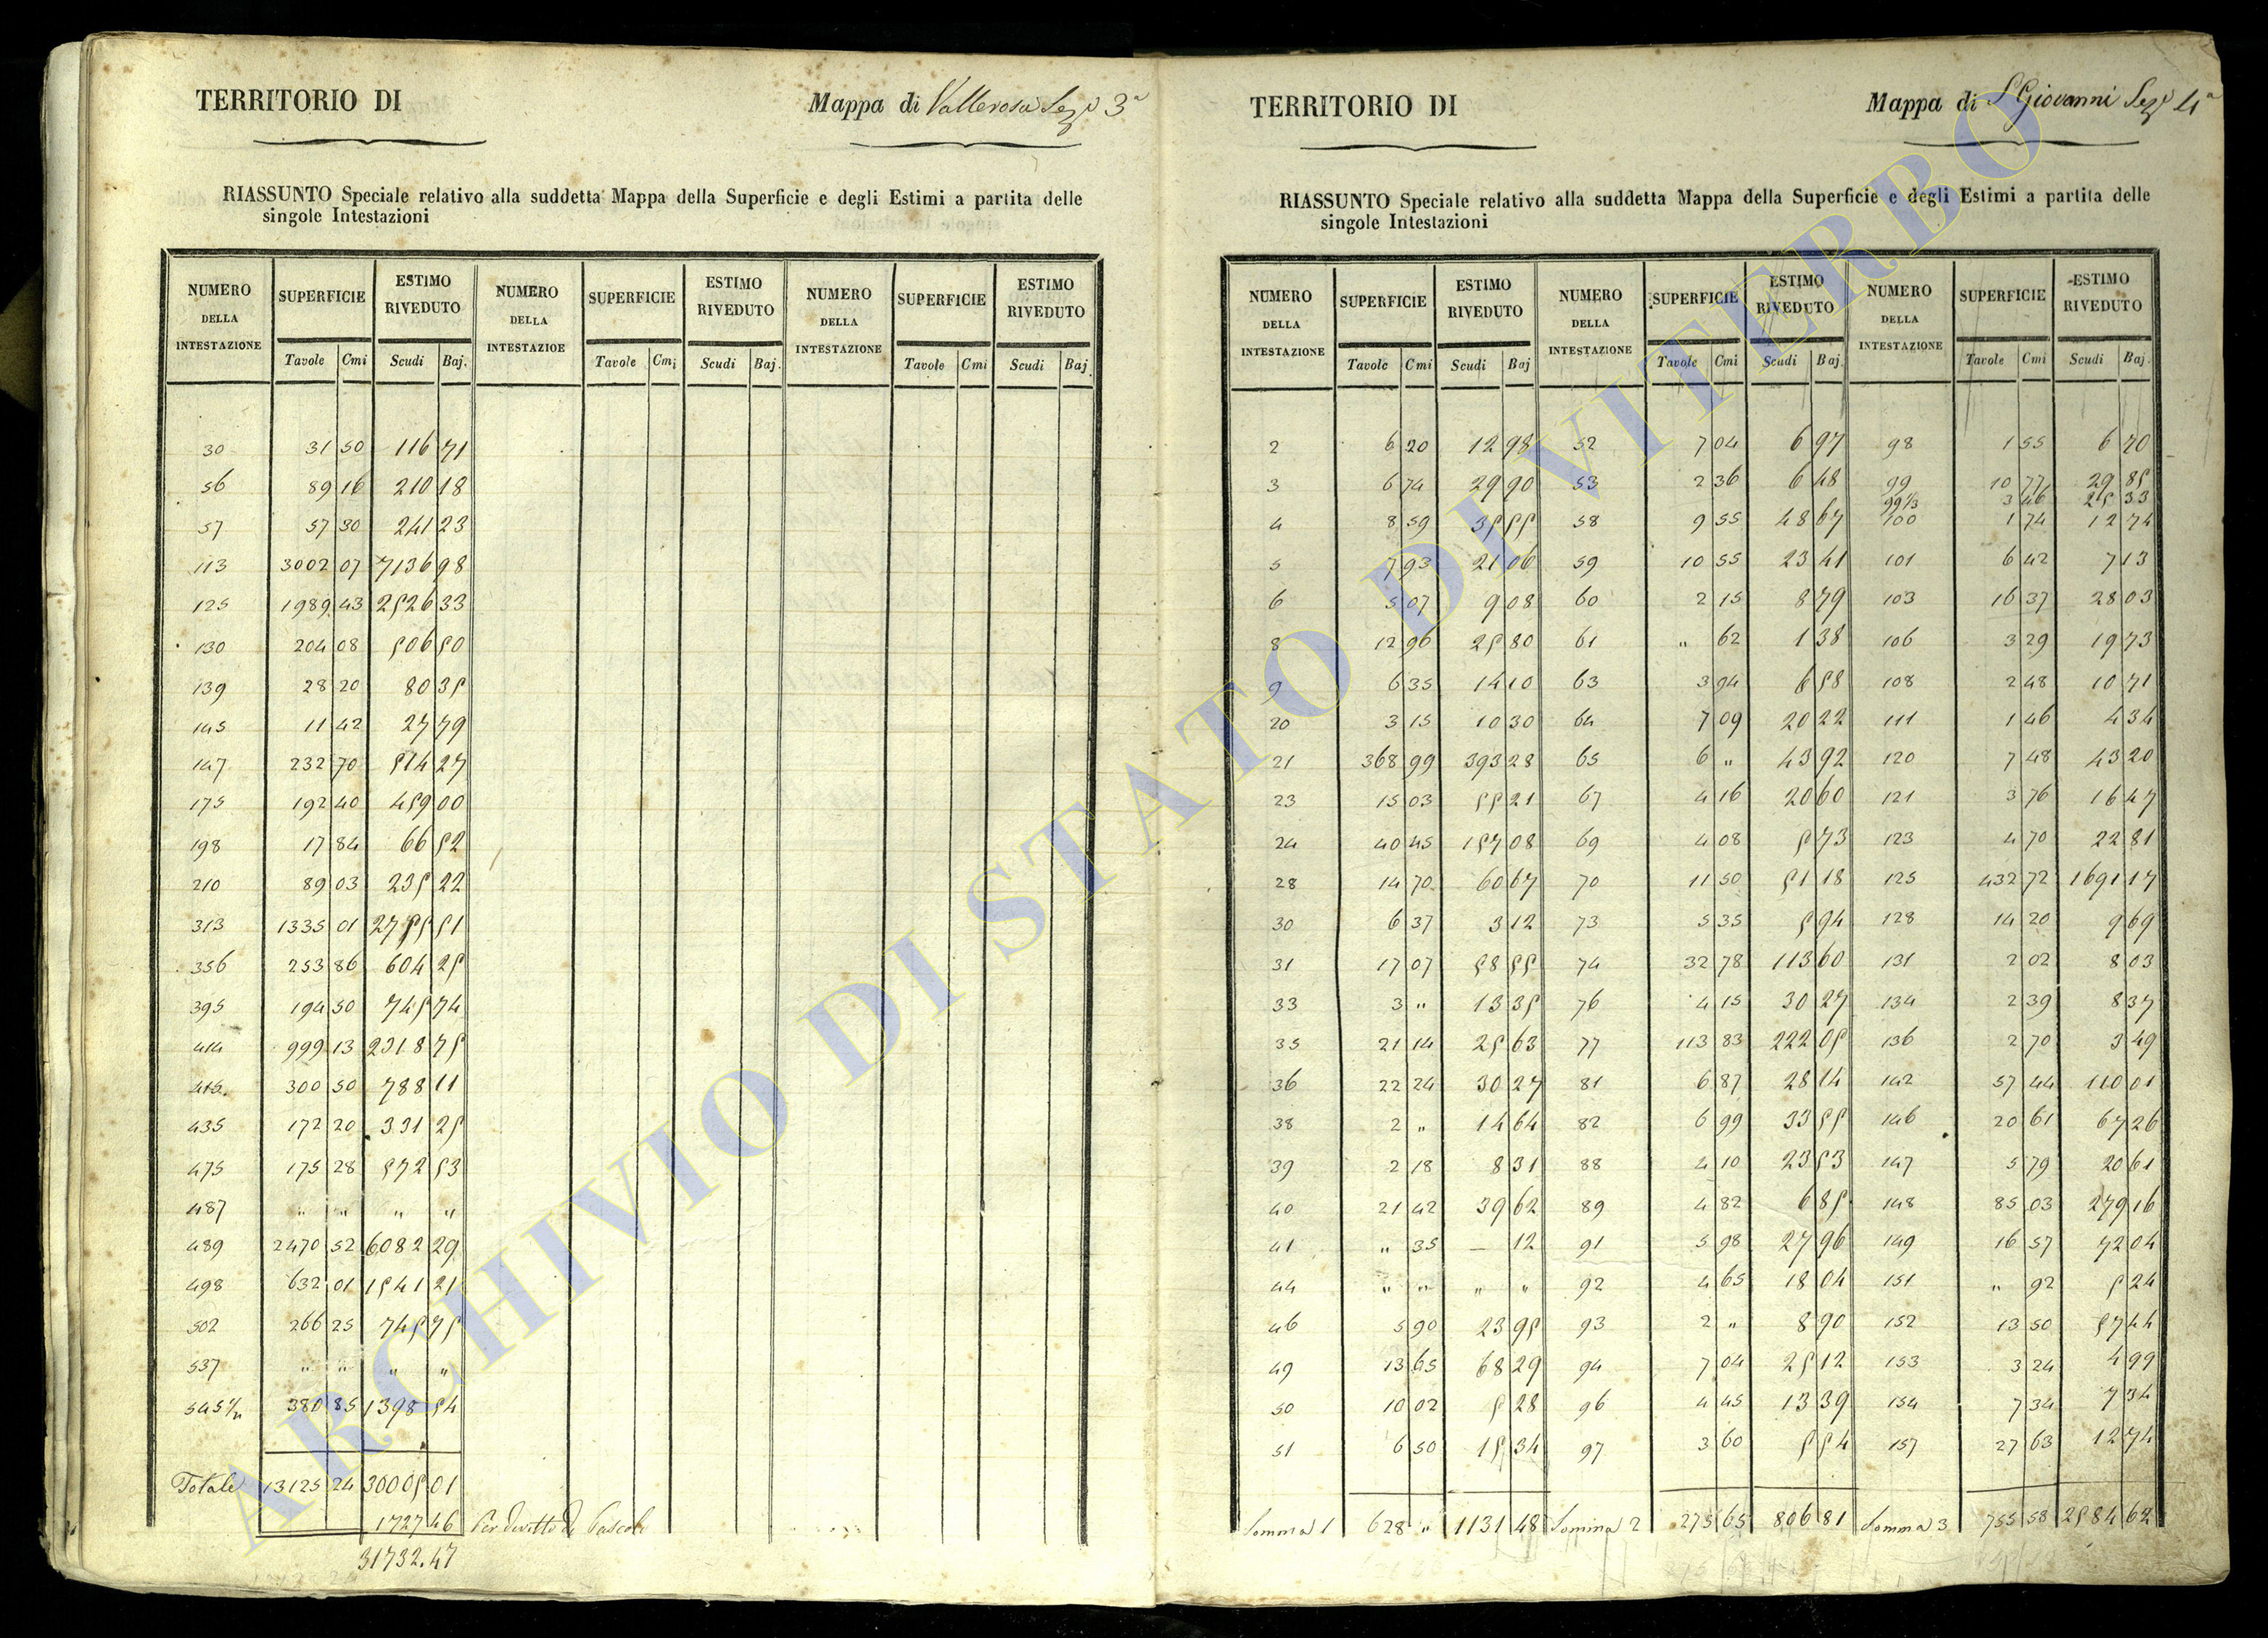 TERRITORIO DI
Mappa di Vallerosa Sez.e 3a
RIASSUNTO Speciale relativo alla suddetta Mappa della Superficie e degli Estimi a partita delle
singole Intestazioni
NUMERO DELLA INTESTAZIONE SUPERFICIE ESTIMO RIVEDUTO NUMERO DELLA INTESTAZIOE SUPERFICIE ESTIMO RIVEDUTO NUMERO DELLA INTESTAZIONE SUPERFICIE ESTIMO RIVEDUTO
Tavole Cmi Scudi Baj. Tavole Cmi Scudi Baj. Tavole Cmi Scudi Baj.
30 31 50 116 71
56 89 16 210 18
57 57 30 241 23
113 3002 07 7136 98
125 1989 43 2526 33
130 204 08 506 50
139 28 20 80 35
145 11 42 27 79
147 232 70 514 27
175 192 40 459 00
198 17 84 66 52
210 89 03 235 22
313 1335 01 2755 51
356 253 86 604 25
395 194 50 745 74
414 999 13 2318 75
415 300 50 788 11
435 172 20 331 25
475 175 28 572 53
487 " " " "
489 2470 52 6082 29
498 632 01 1541 21
502 266 25 745 75
537 " " " "
545 1/2 380 85 1398 54
Totale 13125 24 30005 01
1727 46 Per diritto di Pascolo
31732.47
TERRITORIO DI
Mappa di S Giovanni Sez.e 4a
RIASSUNTO Speciale relativo alla suddetta Mappa della Superficie e degli Estimi a partita delle
singole Intestazioni
NUMERO DELLA INTESTAZIONE SUPERFICIE ESTIMO RIVEDUTO NUMERO DELLA INTESTAZIONE SUPERFICIE ESTIMO RIVEDUTO NUMERO DELLA INTESTAZIONE SUPERFICIE ESTIMO RIVEDUTO
Tavole Cmi Scudi Baj Tavole Cmi Scudi Baj. Tavole Cmi Scudi Baj.
2 6 20 12 98 52 7 04 6 97 98 1 55 6 70
3 6 74 29 90 53 2 36 6 48 99 10 77 29 85
99 1/3 3 46 25 33
4 8 59 35 55 58 9 55 48 67 100 1 74 12 74
5 7 93 21 06 59 10 55 23 41 101 6 42 7 13
6 5 07 9 08 60 2 15 8 79 103 16 37 28 03
8 12 96 25 80 61 " 62 1 38 106 3 29 19 73
9 6 35 14 10 63 3 94 6 58 108 2 48 10 71
20 3 15 10 30 64 7 09 20 22 111 1 46 4 34
21 368 99 393 28 65 6 " 43 92 120 7 48 43 20
23 15 03 55 21 67 4 16 20 60 121 3 76 16 47
24 40 45 157 08 69 4 08 5 73 123 4 70 22 81
28 14 70 60 67 70 11 50 51 18 125 432 72 1691 17
30 6 37 3 12 73 5 35 5 94 128 14 20 9 69
31 17 07 58 55 74 32 78 113 60 131 2 02 8 03
33 3 " 13 35 76 4 15 30 27 134 2 39 8 37
35 21 14 25 63 77 113 83 222 05 136 2 70 3 49
36 22 24 30 27 81 6 87 28 14 142 57 44 110 01
38 2 " 14 64 82 6 99 33 55 146 20 61 67 26
39 2 18 8 31 88 4 10 23 53 147 5 79 20 61
40 21 42 39 62 89 4 82 6 85 148 85 03 279 16
41 " 35 — 12 91 5 98 27 96 149 16 57 72 04
44 " " " " 92 4 65 18 04 151 " 92 5 24
46 5 90 23 95 93 2 " 8 90 152 13 50 57 44
49 13 65 68 29 94 7 04 25 12 153 3 24 4 99
50 10 02 5 28 96 4 45 13 39 154 7 34 7 34
51 6 50 15 34 97 3 60 5 54 157 27 63 12 74
Somma 1 628 " 1131 48 Somma 2 275 65 806 81 Somma 3 755 58 2584 62
ARCHIVIO DI STATO DI VITERBO